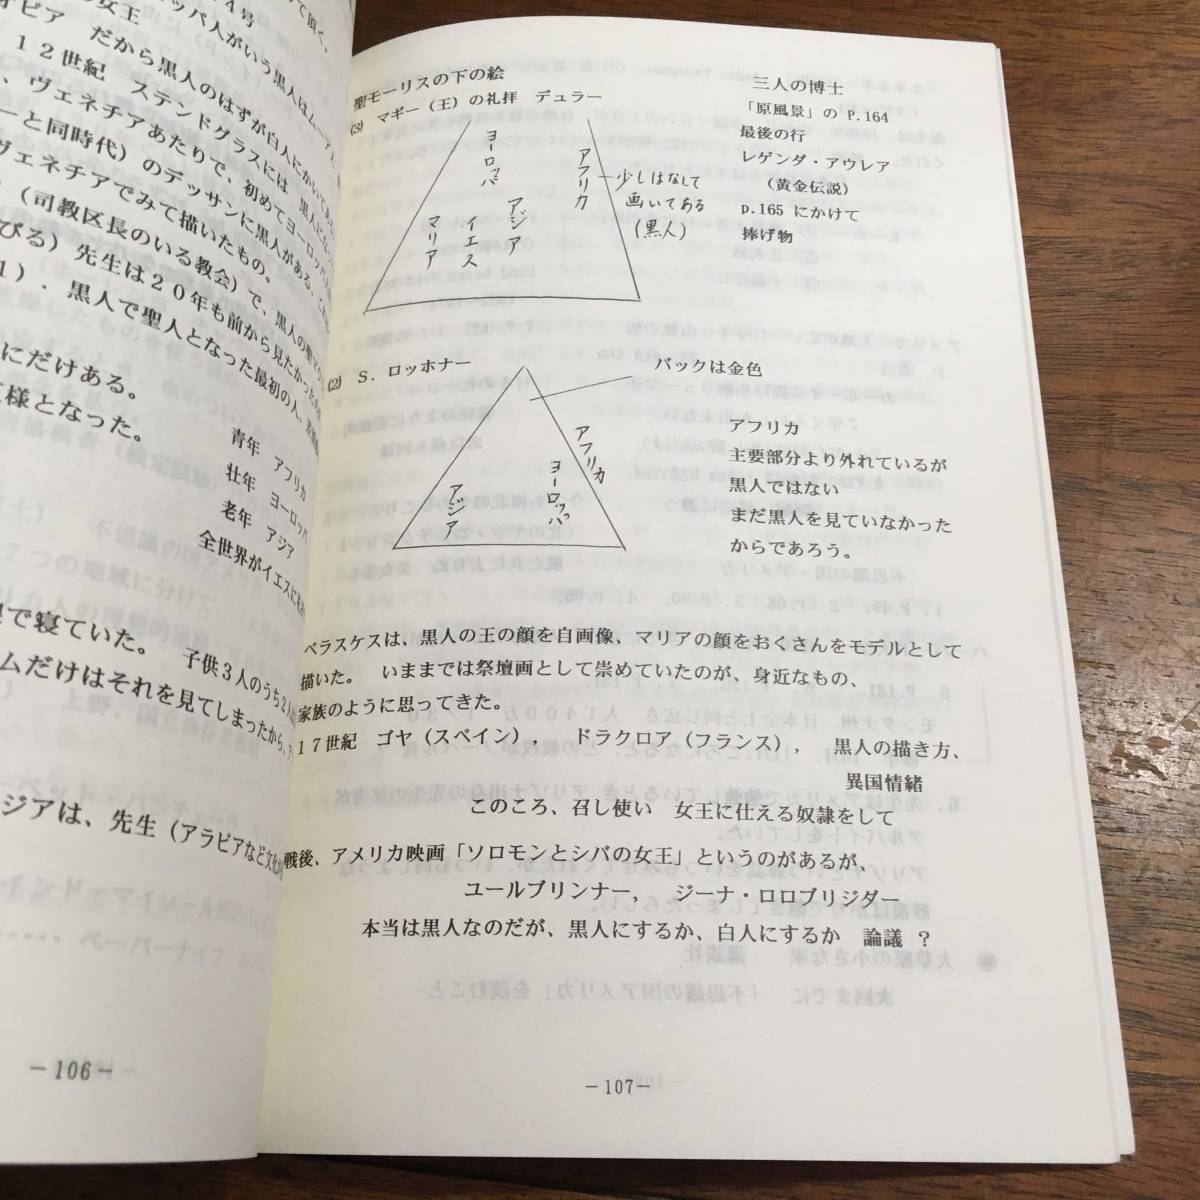 4号
ッパ人がいう黒人はムーア人
の女王
だから黒人のはずが白人にかいてある
12世紀 ステンドグラスには 黒人に
、ヴェネチアあたりで、初めてヨーロッパ
ーと同時代)のデッサンに黒人がある。
ヴェネチアでみて描いたもの。
(司教区長のいる教会)で、黒人の聖マ
びる)先生は20年も前から見たかった
1)・黒人で聖人となった最初の人、
にだけある。
様となった。
青年 アフリカ
壮年 ヨーロッパ
老年 アジア
全世界がイエスに
で寝ていた。 子供3人のうち2人
ムだけはそれを見てしまったから、
ジアは、先生(アラビアなど文化
-106-
聖モーリスの下の絵
(3) マギー(王)の礼拝 デュラー
ヨーロッパ
アフリカ
アジア
イエス
マリア
少しはなして
画いてある
(黒人)
三人の博士
「原風景」の P.164
最後の行
レゲンダ・アウレア
(黄金伝説)
p.165 にかけて
捧げ物
(2) S. ロッホナー
バックは金色
アフリカ
ヨーロッパ
アジア
アフリカ
主要部分より外れているが
黒人ではない
まだ黒人を見ていなかった
からであろう。
ベラスケスは、黒人の王の顔を自画像、マリアの顔をおくさんをモデルとして
描いた。 いままでは祭壇画として崇めていたのが、身近なもの、
家族のように思ってきた。
17世紀 ゴヤ(スペイン), ドラクロア(フランス), 黒人の描き方、
異国情緒
このころ、召し使い 女王に仕える奴隷をして
戦後、アメリカ映画「ソロモンとシバの女王」というのがあるが、
ユールブリンナー, ジーナ・ロロブリジダー
本当は黒人なのだが、黒人にするか、白人にするか 論議 ?
-107-